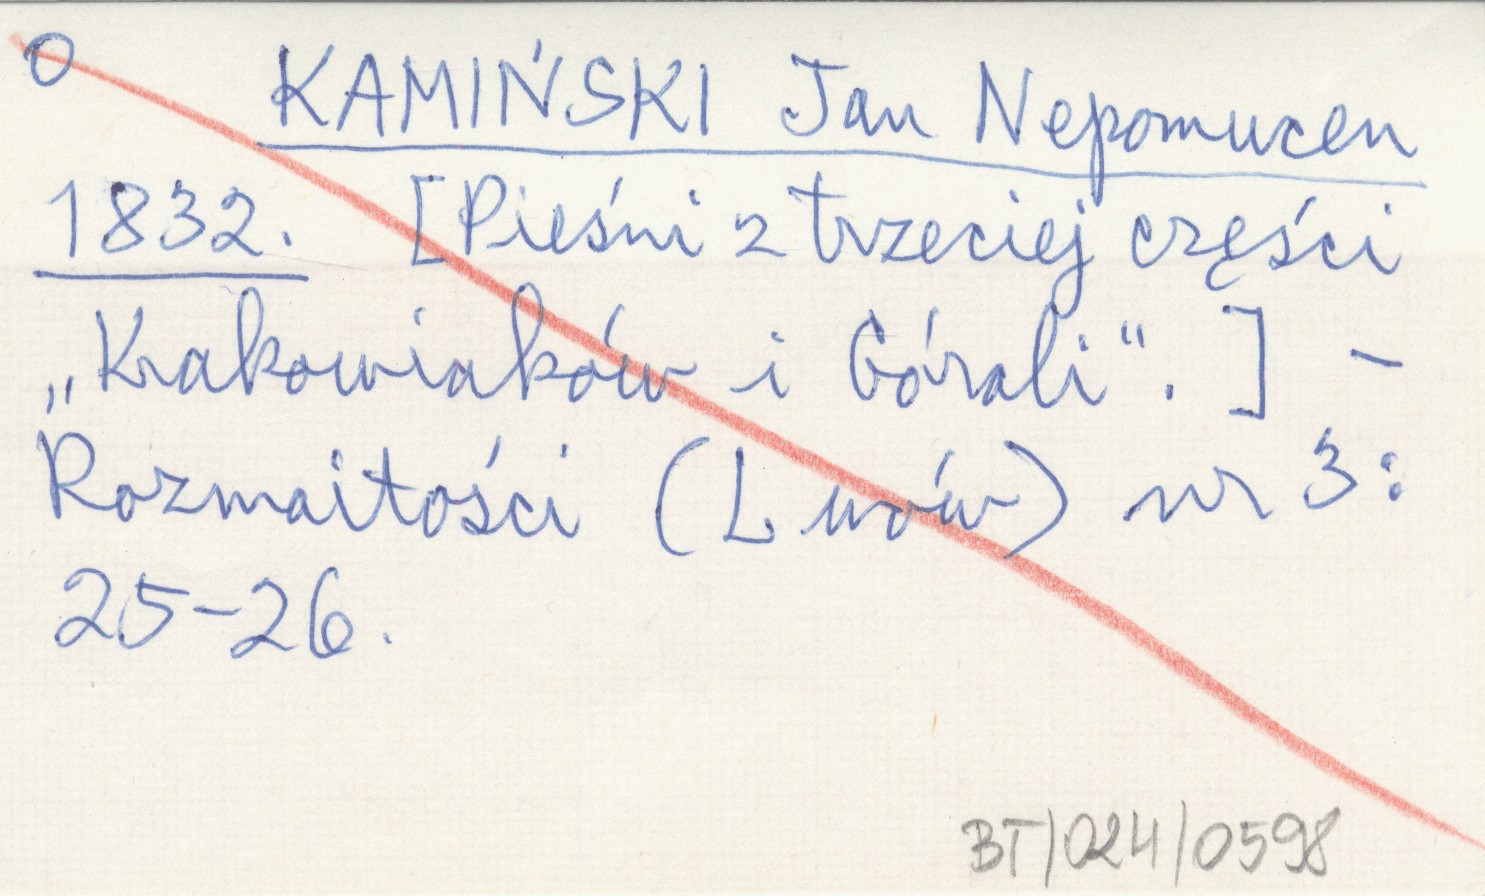 O KAMIŃSKI Jan Nepomucen
1832. [Pieśni z trzeciej części
„Krakowiaków i Górali". ] -
Rozmaitości (Lwów) nr 3:
25-26.
BT/024/0598